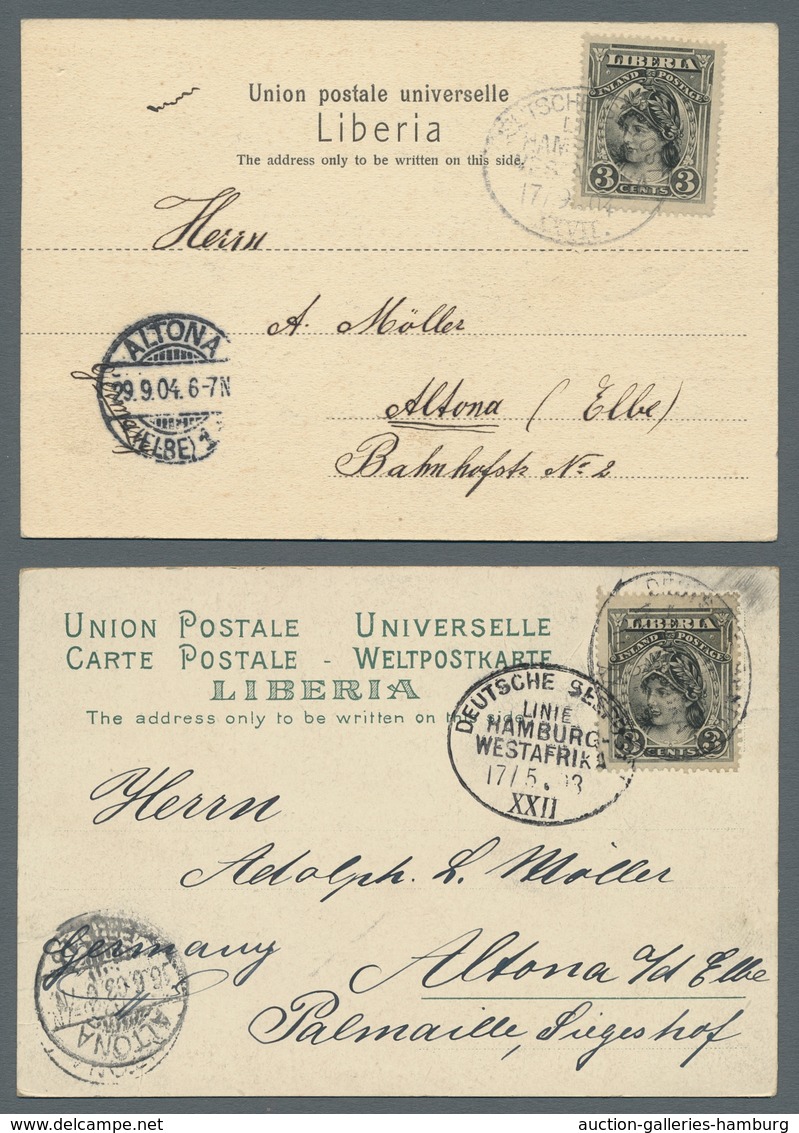 Union postale universelle
Liberia
The address only to be written on this side.
LIBERIA
INLAND POSTAGE
3 CENTS 3
17/9 04
Herrn
A. Möller
Altona (Elbe)
Bahnhofstr No 2
ALTONA
29.9.04. 6-7N
(ELBE)
Germany
UNION POSTALE UNIVERSELLE
CARTE POSTALE - WELTPOSTKARTE
LIBERIA
The address only to be written on this side.
LIBERIA
INLAND POSTAGE
3 CENTS 3
DEUTSCHE SEEPOST
LINIE
HAMBURG-
WESTAFRIKA
17/5.03
XXII
Herrn
Adolph. L. Möller
Germany
Altona a/d Elbe
Palmaille, Siegeshof
ALTONA
auction-galleries-hamburg